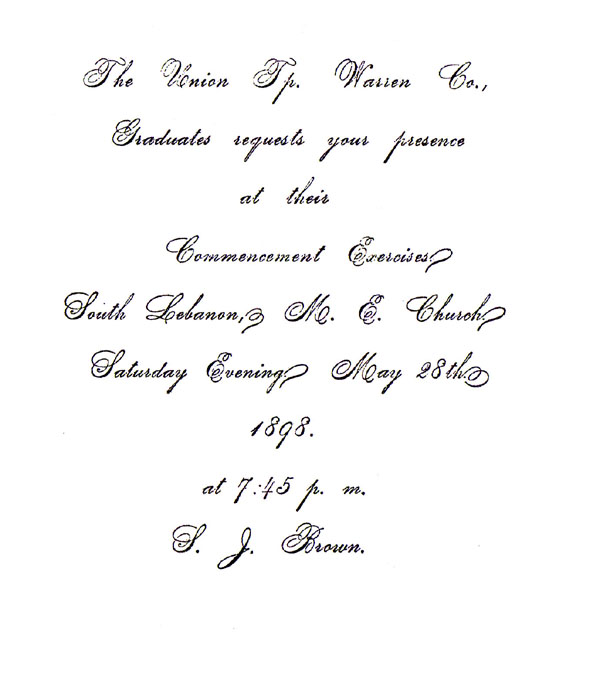 The Union Tp. Warren Co.,
Graduates requests your presence
at their
Commencement Exercises
South Lebanon, M. E. Church
Saturday Evening May 28th
1898.
at 7:45 p. m.
S. J. Brown.